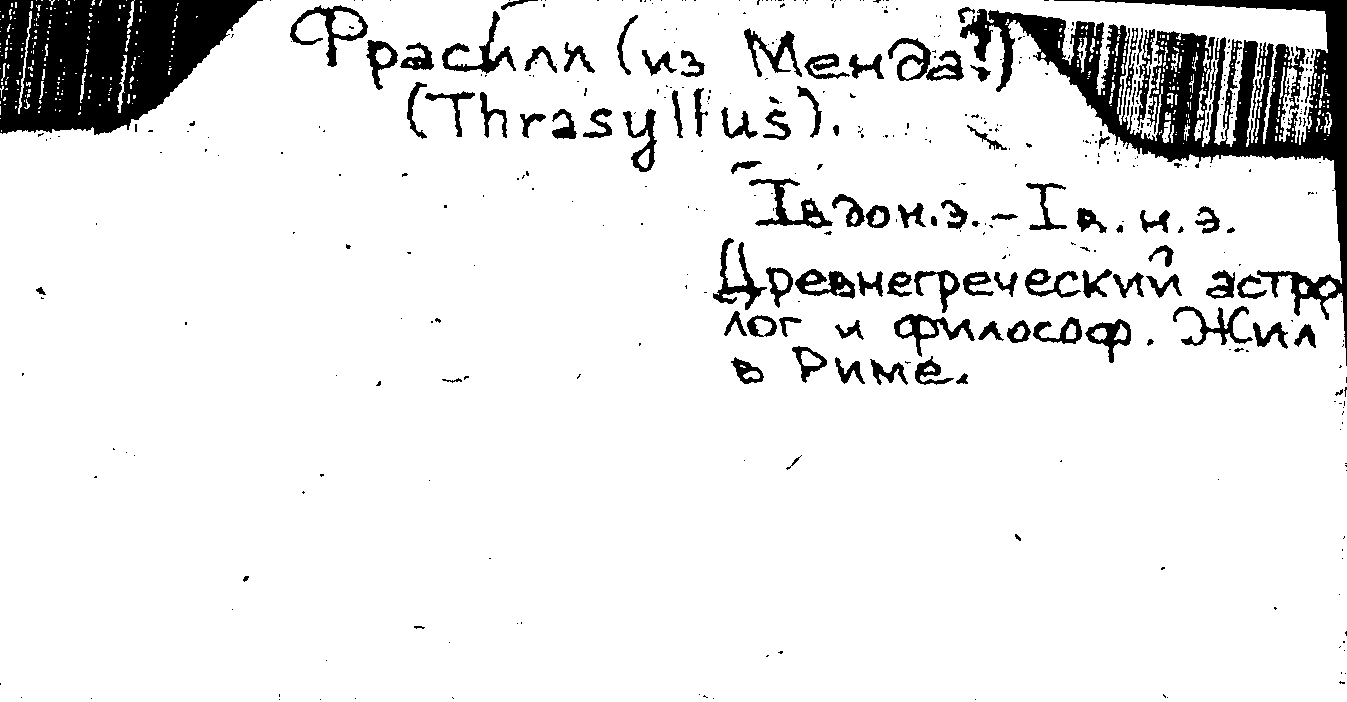 Фрасилл (из Менда?)
(Thrasyllus).
I в до н.э. – I в. н.э.
Древнегреческий астро
лог и философ. Жил
в Риме.